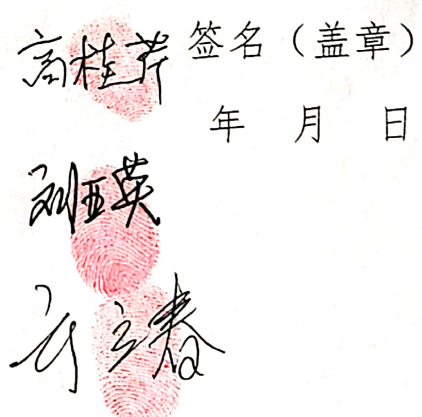 高桂芹 签名（盖章）
年 月 日
刘亚英
立春